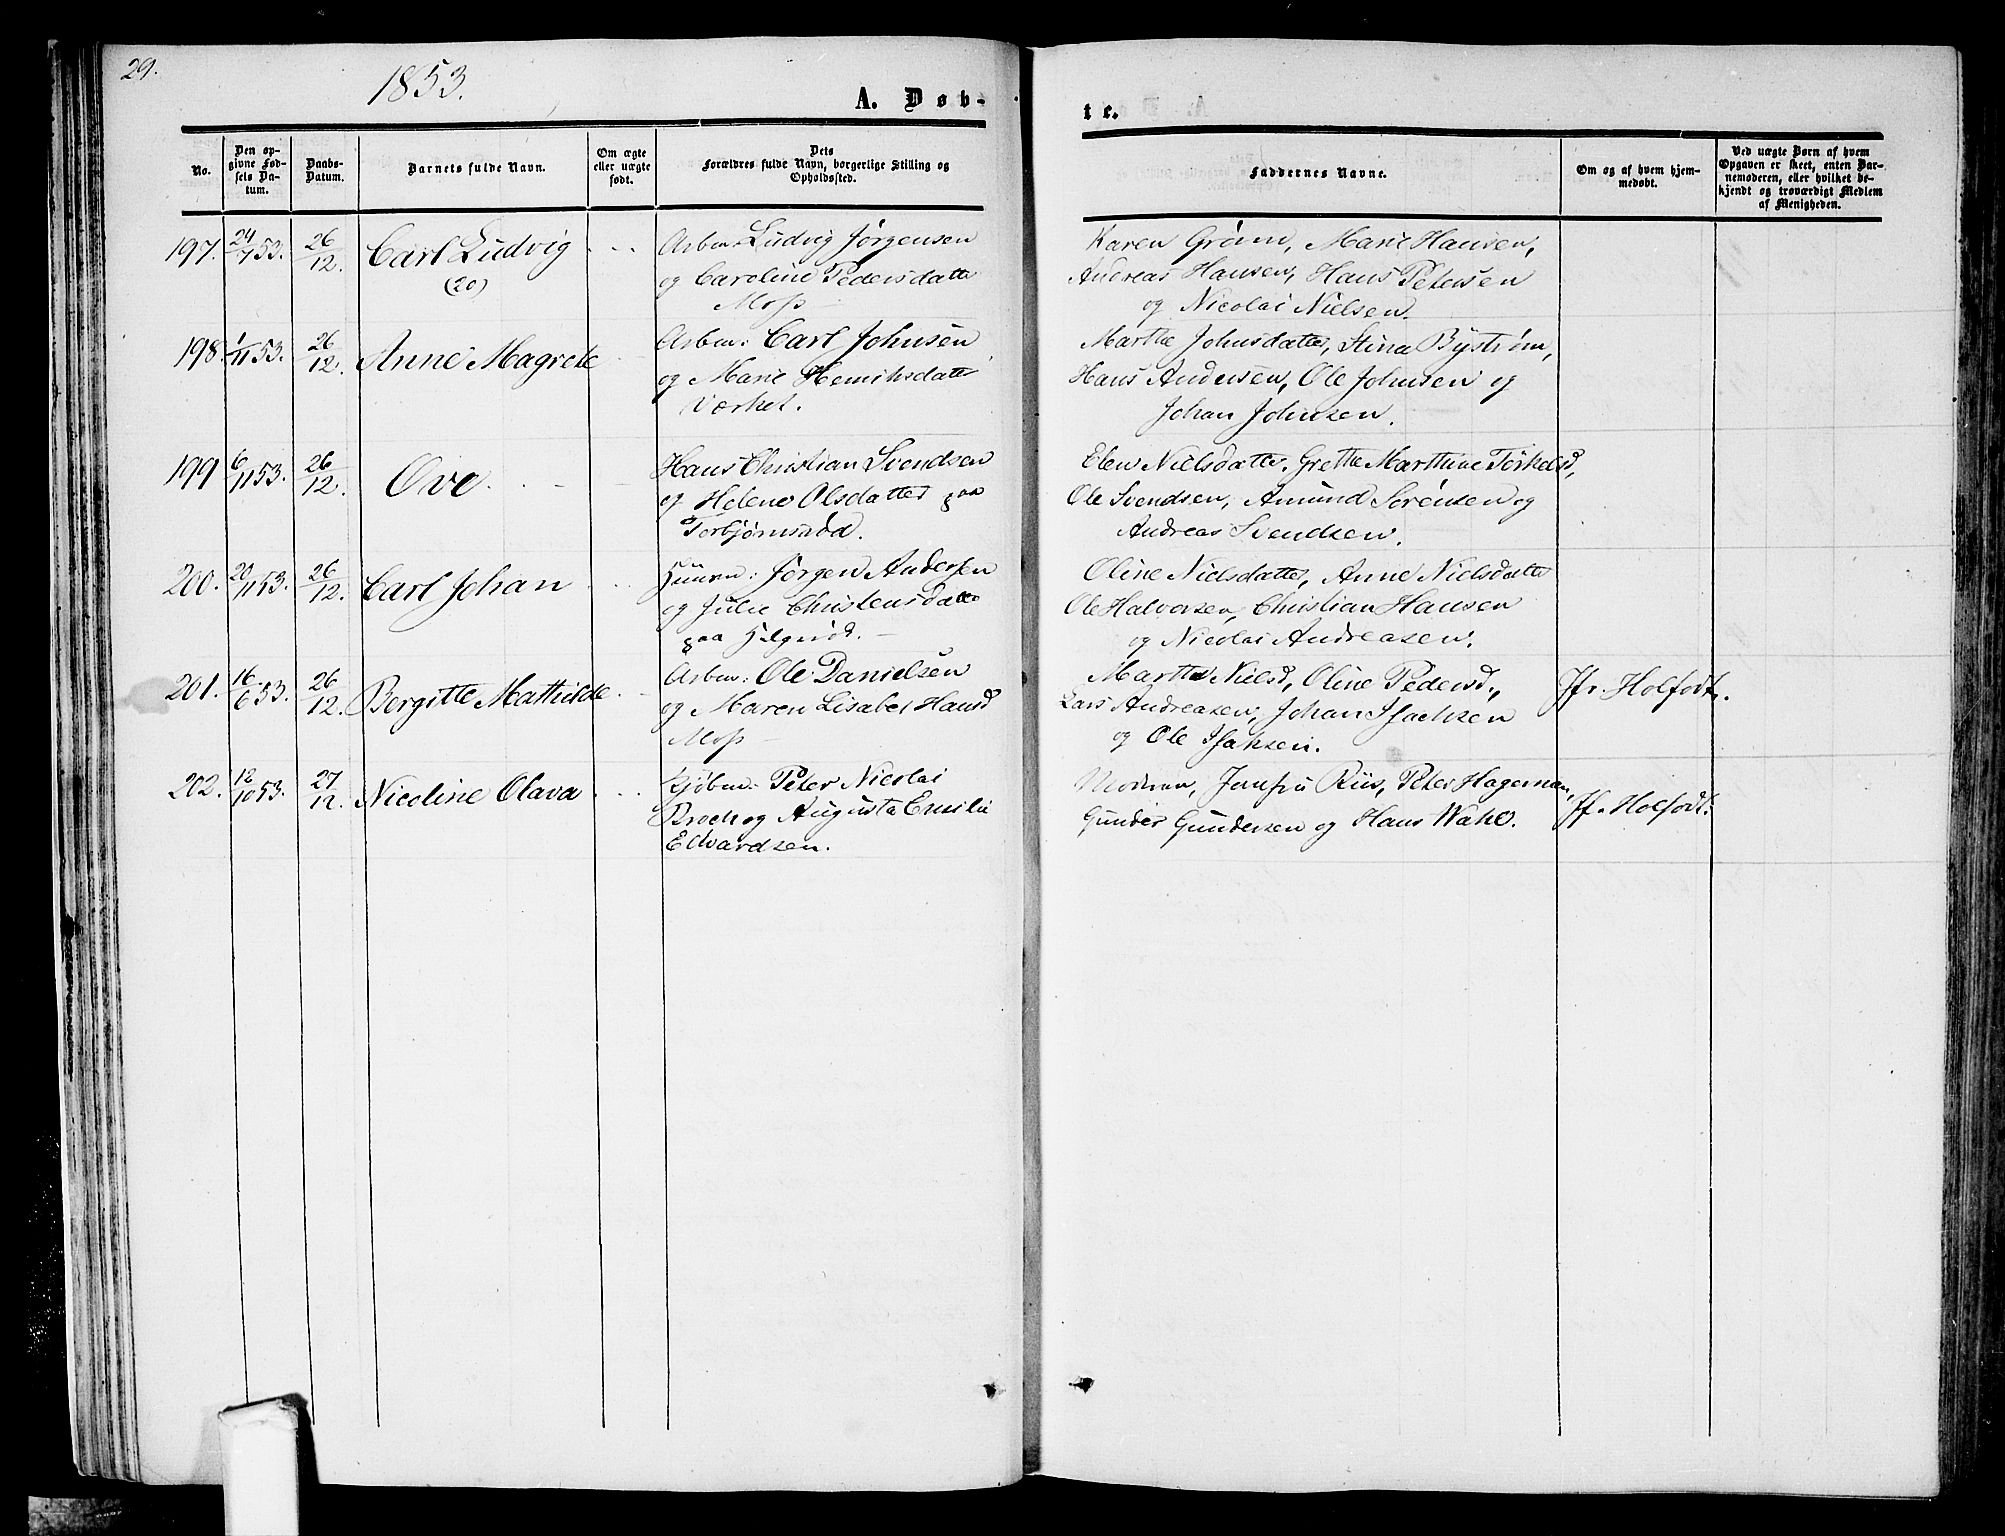 29.
1853.
A. Døb-
te.
No.
Den op-
givne Fød-
sels Da-
tum.
Daabs-
Datum.
Barnets fulde Navn.
Om ægte
eller uægte
født.
Dets
Forældres fulde Navn, borgerlige Stilling og
Opholdssted.
Faddernes Navne.
Om og af hvem hjem-
medøbt.
Ved uægte Børn af hvem
Opgaven er skeet, enten Bar-
nemoderen, eller hvilket be-
kjendt og troværdigt Medlem
af Menigheden.
197. 24/7 53. 26/12. Carl Ludvig
(20)
Arbm: Ludvig Jørgensen
og Caroline Pedersdatte
Moss
Karen Grøun, Marie Hansen,
Andreas Hansen, Hans Petersen
og Nicolai Nielsen.
198. 1/11 53. 26/12. Anne Magrete
Arbm: Carl Johnsen
og Marie Henriksdatte
Værket.
Marthe Johnsdatter, Stina Byström,
Hans Andersen, Ole Johnsen og
Johan Johnsen.
199 6/11 53. 26/12. Ove.
Hans Christian Svendsen
og Helene Olsdatter paa
Torbjørnsrød.
Elen Nielsdatter, Grethe Marthine Torkelsd,
Ole Svendsen, Amund Sörensen og
Andreas Svendsen.
200. 20/11 53. 26/12. Carl Johan
Huusm: Jørgen Andersen
og Julie Christensdatte
paa Helgerød.
Oline Nielsdatter, Anne Nielsdatte
Ole Halvorsen, Christian Hansen
og Nicolai Andreasen.
201. 16/6 53. 26/12. Bergitte Mathilde
Arbm: Ole Danielsen
og Maren Lisabet Hansd
Moss
Marthe Nielsd, Oline Pedersd.,
Lars Andreasen, Johan Isachsen
og Ole Isaksen.
Jfr. Holfodt.
202. 12/10 53. 27/12. Nicoline Olava
Kjøbm: Peter Nicolai
Broch og Augusta Emilie
Edvardsen.
Modren, Jomfru Riis, Peter Hageman,
Gunder Gundersen og Hans Wahl.
Jf. Holfodt.